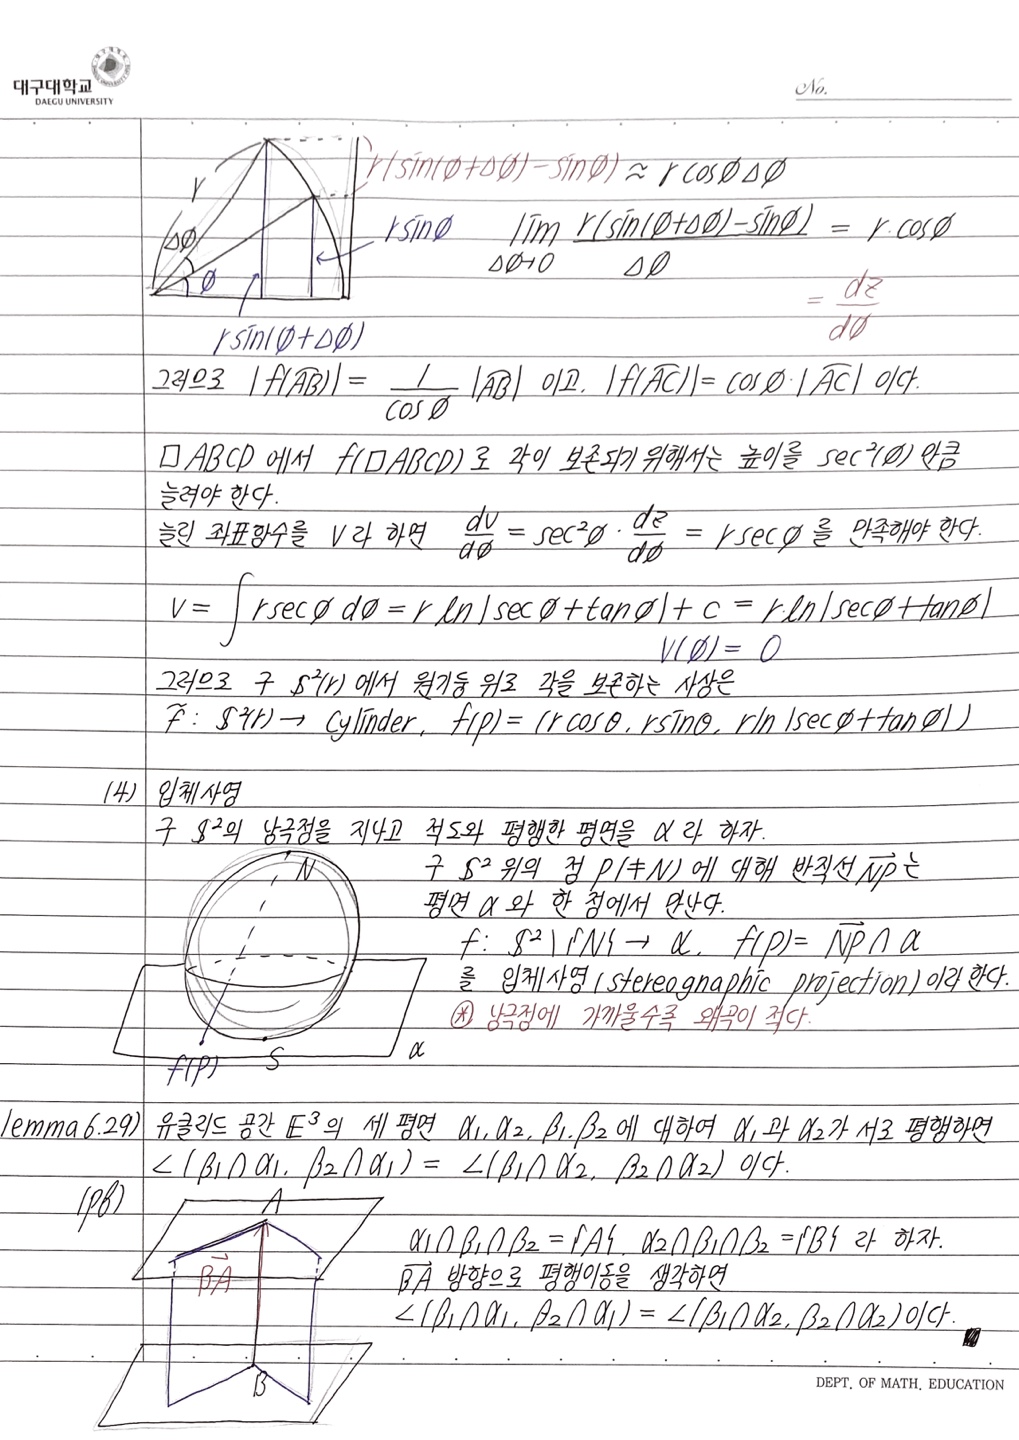 대구대학교
DAEGU UNIVERSITY
No.
r
r(sin(∅+Δ∅)-sin∅) ≈ r cos∅Δ∅
Δ∅
∅
r sin∅
lim Δ∅→0 r(sin(∅+Δ∅)-sin∅) / Δ∅ = r·cos∅
= dz/d∅
r sin(∅+Δ∅)
그러므로 |f(AB)| = 1/cos∅ |AB| 이고, |f(AC)| = cos∅·|AC| 이다.
□ABCD 에서 f(□ABCD)로 각이 보존되기 위해서는 높이를 sec²(∅) 만큼
늘려야 한다.
늘린 좌표함수를 V라 하면 dv/d∅ = sec²∅ · dz/d∅ = r sec∅ 를 만족해야 한다.
V = ∫ r sec∅ d∅ = r ln|sec∅+tan∅| + c = r·ln|sec∅+tan∅|
V(∅) = 0
그러므로 구 S²(r) 에서 원기둥 위로 각을 보존하는 사상은
f̃ : S²(r) → Cylinder, f(p) = (r cosθ, r sinθ, r ln|sec∅+tan∅|)
(4) 입체사영
구 S²의 남극점을 지나고 적도와 평행한 평면을 α라 하자.
N
구 S² 위의 점 P(≠N)에 대해 반직선 NP는
평면 α와 한 점에서 만난다.
f : S²\{N} → α, f(p) = NP ∩ α
를 입체사영(stereognaphic projection)이라 한다.
※ 남극점에 가까울수록 왜곡이 적다.
f(P)
S
α
lemma 6.29) 유클리드 공간 E³의 세 평면 α₁, α₂, β₁, β₂에 대하여 α₁과 α₂가 서로 평행하면
∠(β₁∩α₁, β₂∩α₁) = ∠(β₁∩α₂, β₂∩α₂) 이다.
(pf)
A
α₁∩β₁∩β₂ = {A}, α₂∩β₁∩β₂ = {B} 라 하자.
BA
BA 방향으로 평행이동을 생각하면
∠(β₁∩α₁, β₂∩α₁) = ∠(β₁∩α₂, β₂∩α₂)이다.
B
DEPT. OF MATH. EDUCATION